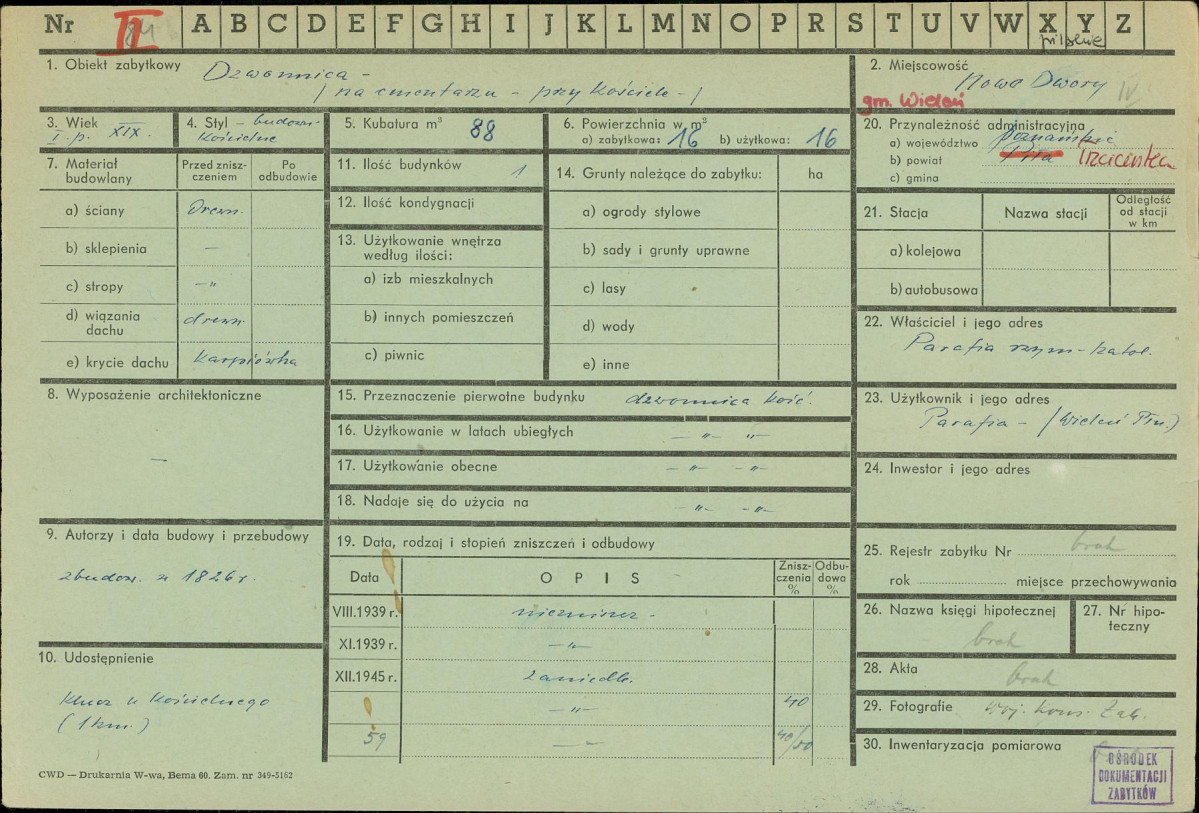 Nr II A B C D E F G H I J K L M N O P R S T U V W X Y Z
pilskie
1. Obiekt zabytkowy Dzwonnica -
/ na cmentarzu - przy Kościele - /
2. Miejscowość
Nowe Dwory IV
gm. Wieleń
3. Wiek
I. p. XIX.
4. Styl - budown.
Kościelne
5. Kubatura m³ 88
6. Powierzchnia w m²
a) zabytkowa: 16 b) użytkowa: 16
20. Przynależność administracyjna
a) województwo poznańskie
b) powiat Piła Trzcianka
c) gmina
7. Materiał budowlany
Przed znisz-
czeniem
Po
odbudowie
a) ściany drewn.
b) sklepienia —
c) stropy -"
d) wiązania
dachu drewn.
e) krycie dachu Karpiówka
11. Ilość budynków 1
12. Ilość kondygnacji
13. Użytkowanie wnętrza
według ilości:
a) izb mieszkalnych
b) innych pomieszczeń
c) piwnic
14. Grunty należące do zabytku: ha
a) ogrody stylowe
b) sady i grunty uprawne
c) lasy
d) wody
e) inne
21. Stacja Nazwa stacji
Odległość
od stacji
w km
a) kolejowa
b) autobusowa
22. Właściciel i jego adres
Parafia rzym-katol.
8. Wyposażenie architektoniczne
—
15. Przeznaczenie pierwotne budynku dzwonnica kość.
16. Użytkowanie w latach ubiegłych — „— „—
17. Użytkowanie obecne — „— —„—
18. Nadaje się do użycia na — „— —„—
23. Użytkownik i jego adres
Parafia - (Wieleń Płn.)
24. Inwestor i jego adres
9. Autorzy i data budowy i przebudowy
zbudow. w 1826 r.
10. Udostępnienie
Klucz u Kościelnego
(1 km.)
19. Data, rodzaj i stopień zniszczeń i odbudowy
Data OPIS
Znisz-
czenia
%
Odbu-
dowa
%
VIII.1939 r. niezniszcz.
XI.1939 r. — „—
XII.1945 r. zaniedb.
— „— 40
59 — — 40/50
25. Rejestr zabytku Nr brak
rok miejsce przechowywania
26. Nazwa księgi hipotecznej
brak
27. Nr hipo-
teczny
28. Akta brak
29. Fotografie woj. kons. Zab.
30. Inwentaryzacja pomiarowa
OŚRODEK
DOKUMENTACJI
ZABYTKÓW
CWD — Drukarnia W-wa, Bema 60. Zam. nr 349-5162